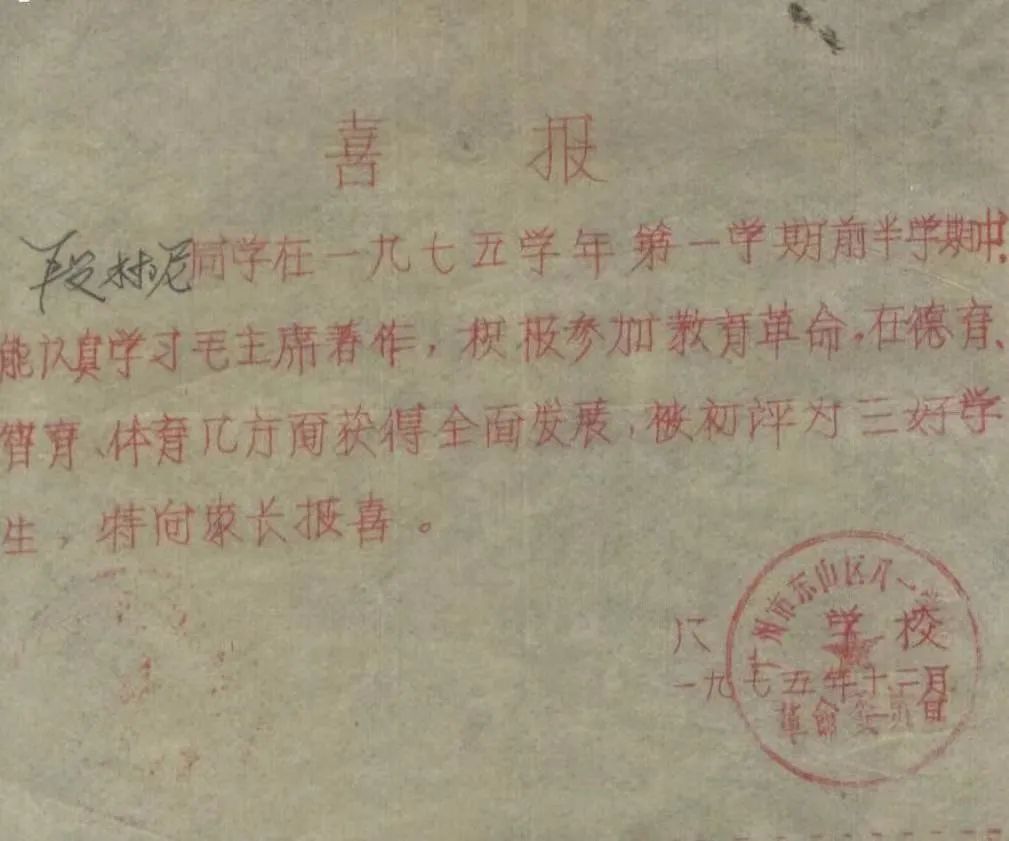 喜报
段林尼同学在一九七五学年第一学期前半学期中,
能认真学习毛主席著作,积极参加教育革命,在德育、
智育、体育几方面获得全面发展,被初评为三好学
生,特向家长报喜。
广州市东山区八一
八 学校
一九七五年十二月 日
革命委员会